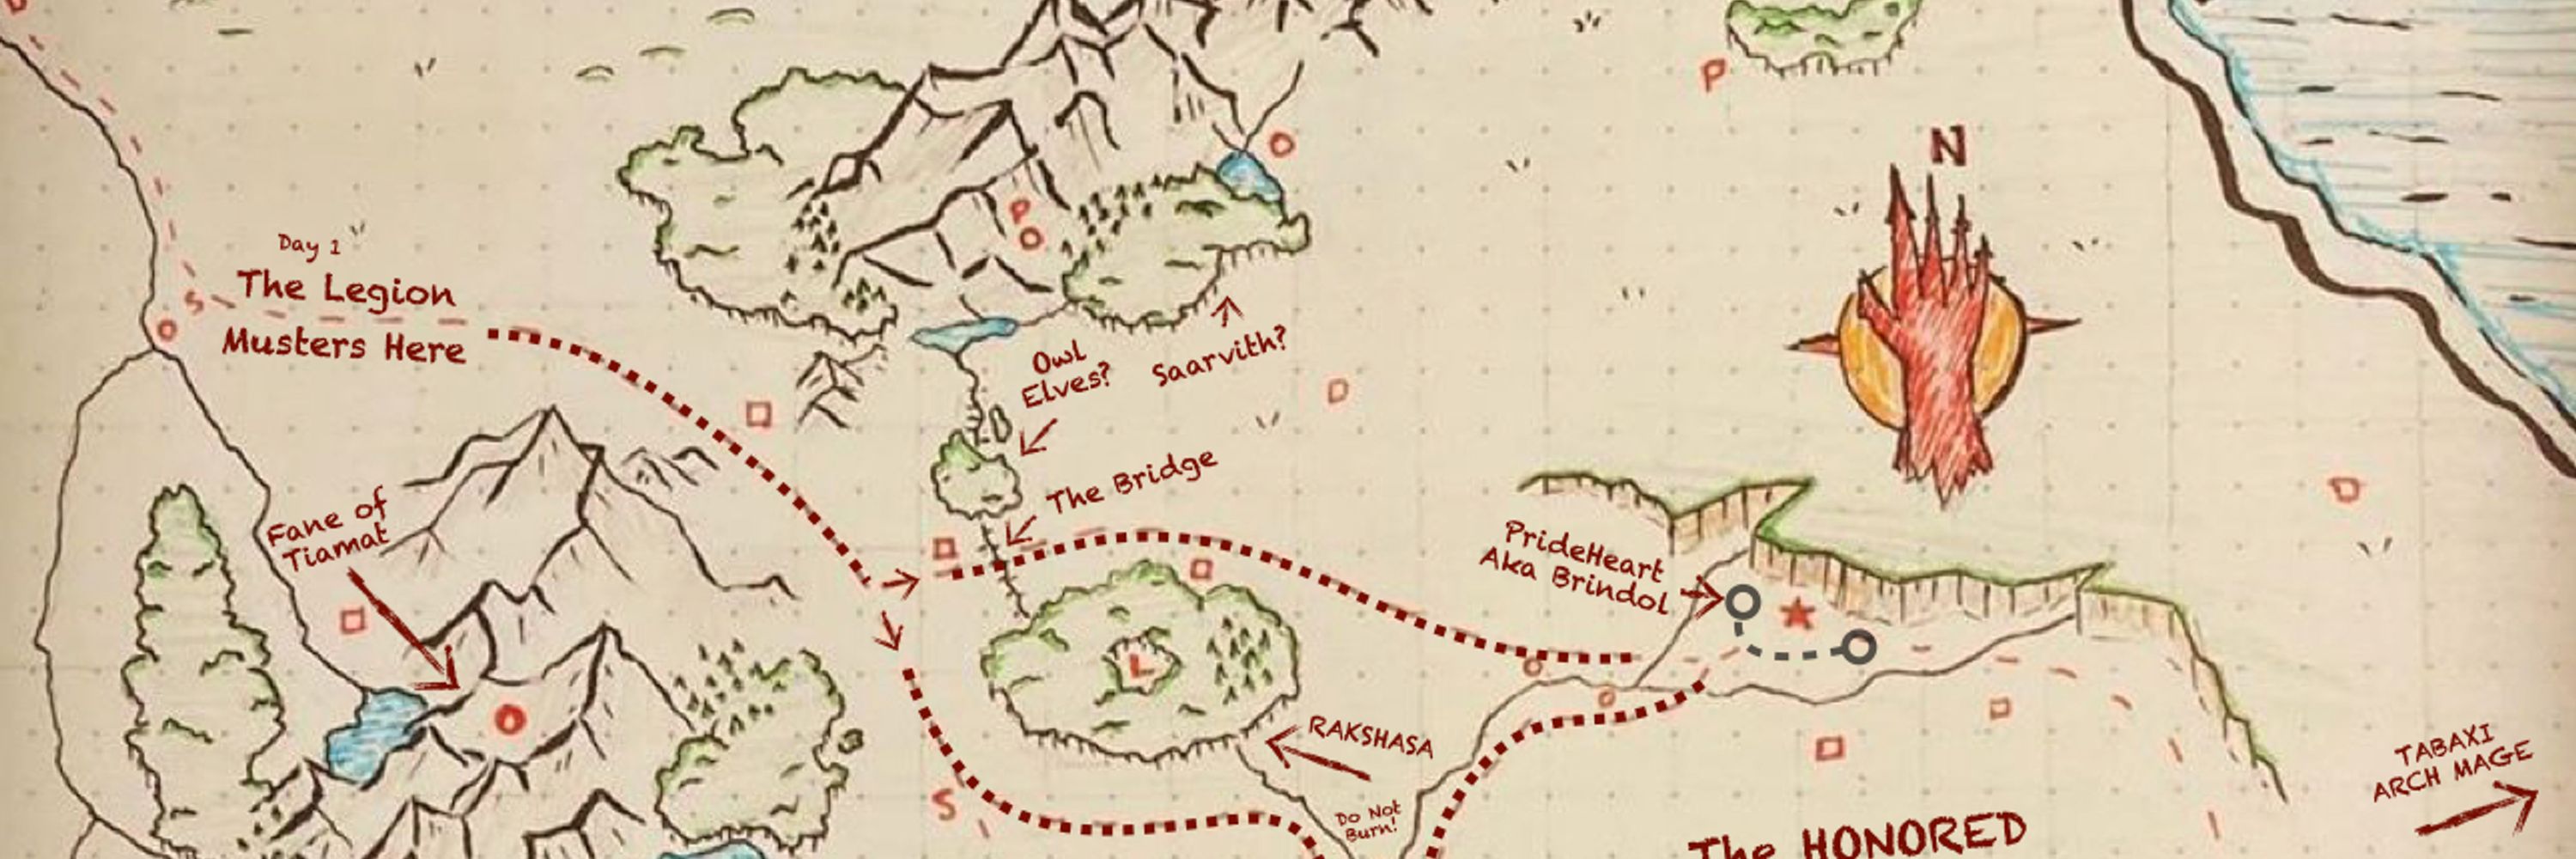 P
N
O
P
O
Day 1
The Legion
Musters Here
S
O
Owl
Elves?
Saarvith?
The Bridge
Fane of
Tiamat
PrideHeart
Aka Brindol
L
O
RAKSHASA
S
Do Not
Burn!
TABAXI
ARCH MAGE
The HONORED